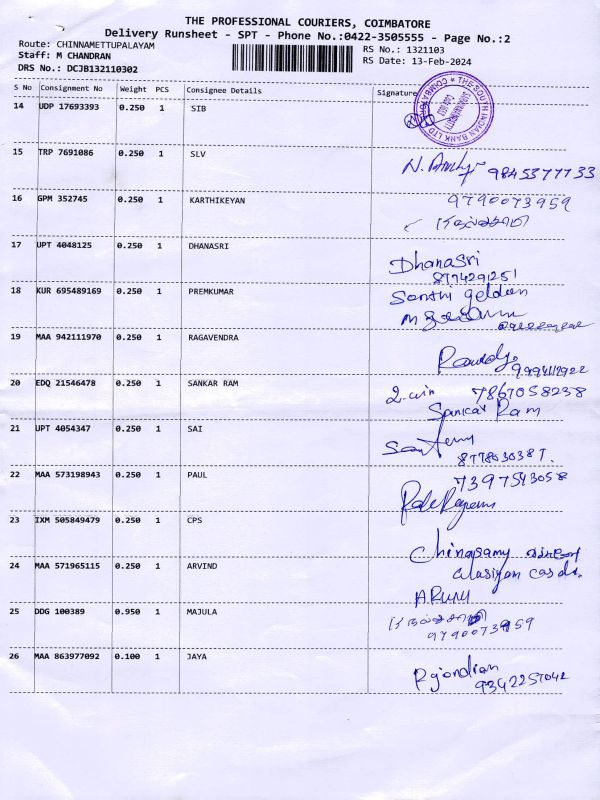 THE PROFESSIONAL COURIERS, COIMBATORE
Delivery Runsheet - SPT - Phone No.:0422-3505555 - Page No.:2
Route: CHINNAMETTUPALAYAM
RS No.: 1321103
Staff: M CHANDRAN
RS Date: 13-Feb-2024
DRS No.: DCJB132110302
S No Consignment No Weight PCS Consignee Details Signature
THE SOUTH INDIAN BANK LTD
14 UDP 17693393 0.250 1 SIB
15 TRP 7691086 0.250 1 SLV
9845377733
16 GPM 352745 0.250 1 KARTHIKEYAN 9790073959
17 UPT 4048125 0.250 1 DHANASRI Dhanasri
8774291251
18 KUR 695489169 0.250 1 PREMKUMAR
19 MAA 942111970 0.250 1 RAGAVENDRA
20 EDQ 21546478 0.250 1 SANKAR RAM 7867058238
Sankar Ram
21 UPT 4054347 0.250 1 SAI
22 MAA 573198943 0.250 1 PAUL 7397543058
23 IXM 505849479 0.250 1 CPS Chinasamy
24 MAA 571965115 0.250 1 ARVIND
25 DDG 100389 0.950 1 MAJULA
9790073959
26 MAA 863977092 0.100 1 JAYA